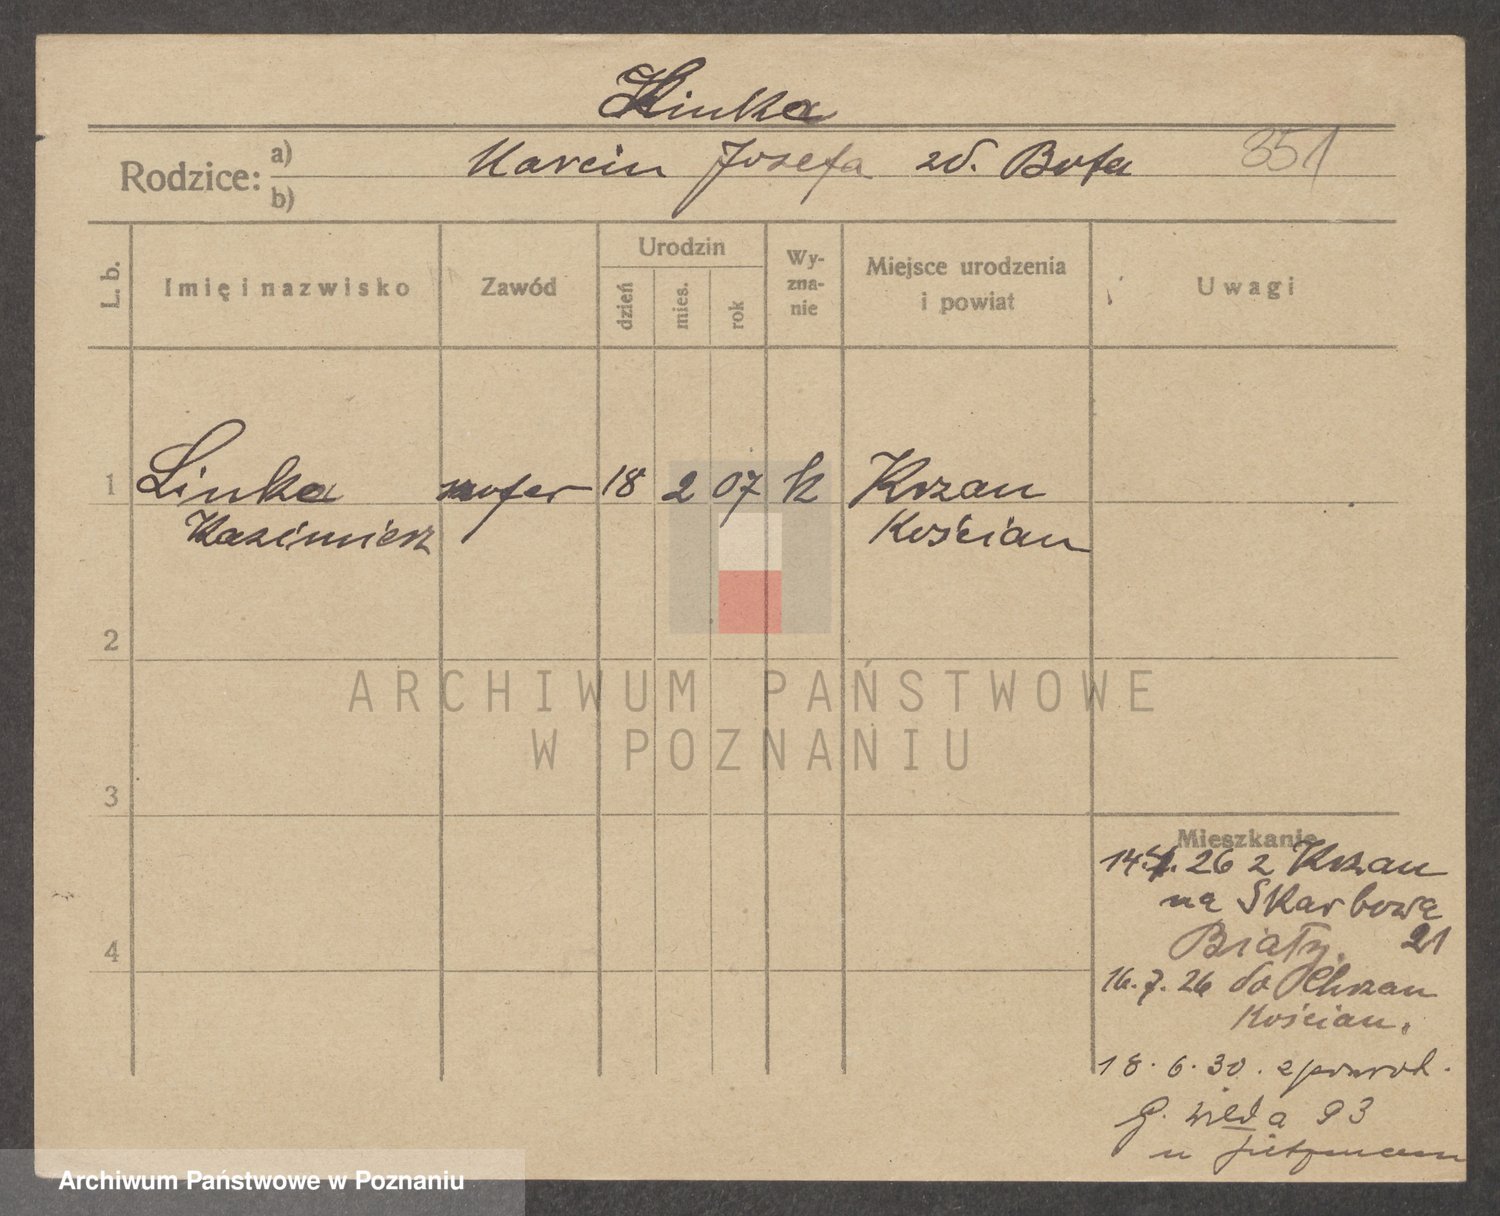 Linka
Rodzice: a)
b)
Marcin Josefa zd. Bota
351
L. b.
Imię i nazwisko
Zawód
Urodzin
dzień
mies.
rok
Wy-
zna-
nie
Miejsce urodzenia
i powiat
Uwagi
1 Linka szofer 18 2 07 k Krzan
Kazimierz Kościan
2
3
4
ARCHIWUM PAŃSTWOWE
W POZNANIU
Mieszkanie
26 z Krzan
na Skarbową
21
16.7.26 do Chrzan
Kościan.
18.6.30. zpowrot.
G. Wilda 93
u
Archiwum Państwowe w Poznaniu